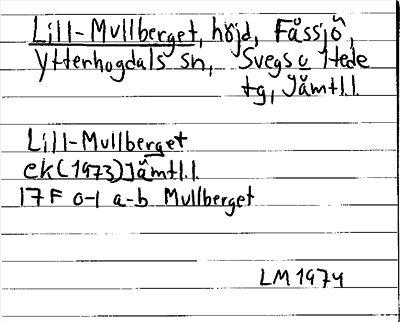 Lill-Mullberget, höjd, Fåssjö,
Ytterhogdals sn, Svegs o Hede
tg, Jämtl.l.
Lill-Mullberget
ek (1973) Jämtl.l.
17 F 0-1 a-b Mullberget
LM 1974